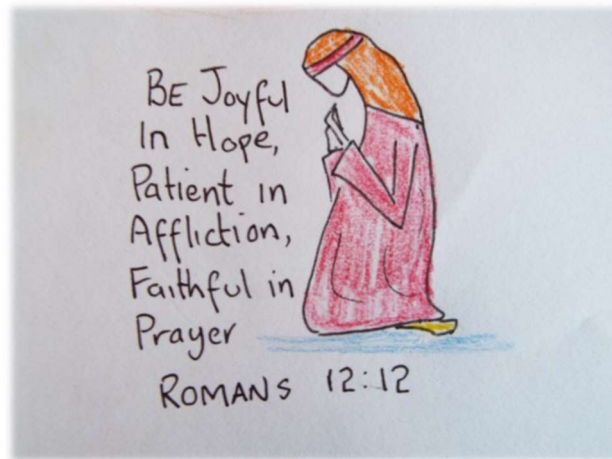 BE Joyful
In Hope,
Patient in
Affliction,
Faithful in
Prayer
ROMANS 12:12